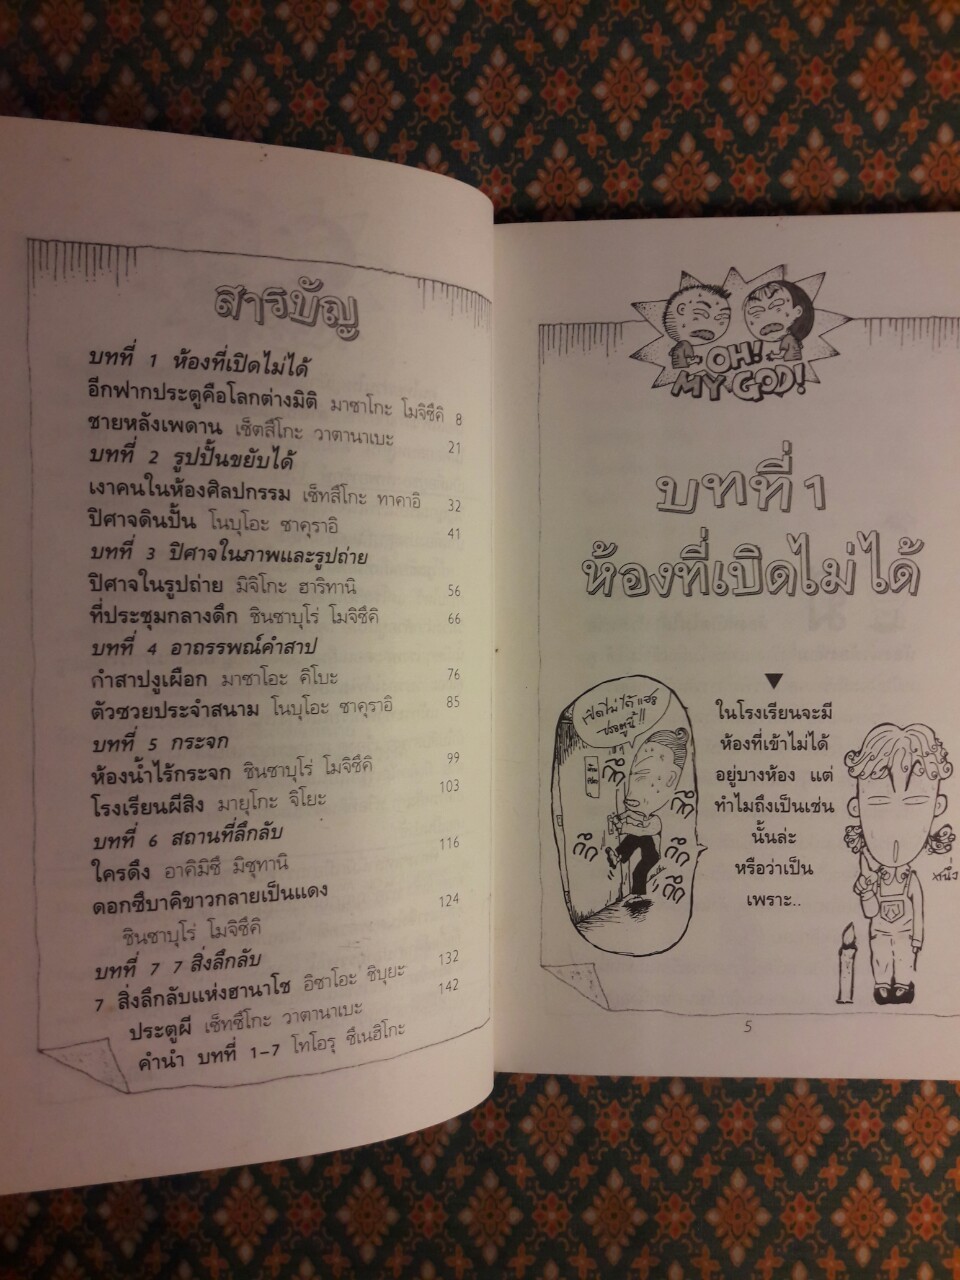 สารบัญ
บทที่ 1 ห้องที่เปิดไม่ได้
อีกฟากประตูคือโลกต่างมิติ มาซาโกะ โมจิซึคิ 8
ชายหลังเพดาน เซ็ตสึโกะ วาตานาเบะ 21
บทที่ 2 รูปปั้นขยับได้
เงาคนในห้องศิลปกรรม เซ็ทสึโกะ ทาคาอิ 32
ปิศาจดินปั้น โนบุโอะ ซาคุราอิ 41
บทที่ 3 ปิศาจในภาพและรูปถ่าย
ปิศาจในรูปถ่าย มิจิโกะ ฮาริทานิ 56
ที่ประชุมกลางดึก ชินซาบุโร่ โมจิซึคิ 66
บทที่ 4 อาถรรพณ์คำสาป
คำสาปงูเผือก มาซาโอะ คิโบะ 76
ตัวซวยประจำสนาม โนบุโอะ ซาคุราอิ 85
บทที่ 5 กระจก
ห้องน้ำไร้กระจก ชินซาบุโร่ โมจิซึคิ 99
โรงเรียนผีสิง มายุโกะ จิโยะ 103
บทที่ 6 สถานที่ลึกลับ
ใครดึง อาคิมิซึ มิซุทานิ 116
ดอกซึบาคิขาวกลายเป็นแดง 124
ชินซาบุโร่ โมจิซึคิ
บทที่ 7 7 สิ่งลึกลับ
7 สิ่งลึกลับแห่งฮานาโซ อิซาโอะ ชิบุยะ 132
ประตูผี เซ็ทซึโกะ วาตานาเบะ 142
คำนำ บทที่ 1-7 โทโอรุ ซึเนฮิโกะ
OH!
MY GOD!
บทที่ 1
ห้องที่เปิดไม่ได้
เปิดไม่ได้แฮะ
ประตูนี้!!
กึก
กึก
กึก
กึก
กึก
ในโรงเรียนจะมี
ห้องที่เข้าไม่ได้
อยู่บางห้อง แต่
ทำไมถึงเป็นเช่น
นั้นล่ะ
หรือว่าเป็น
เพราะ..
5